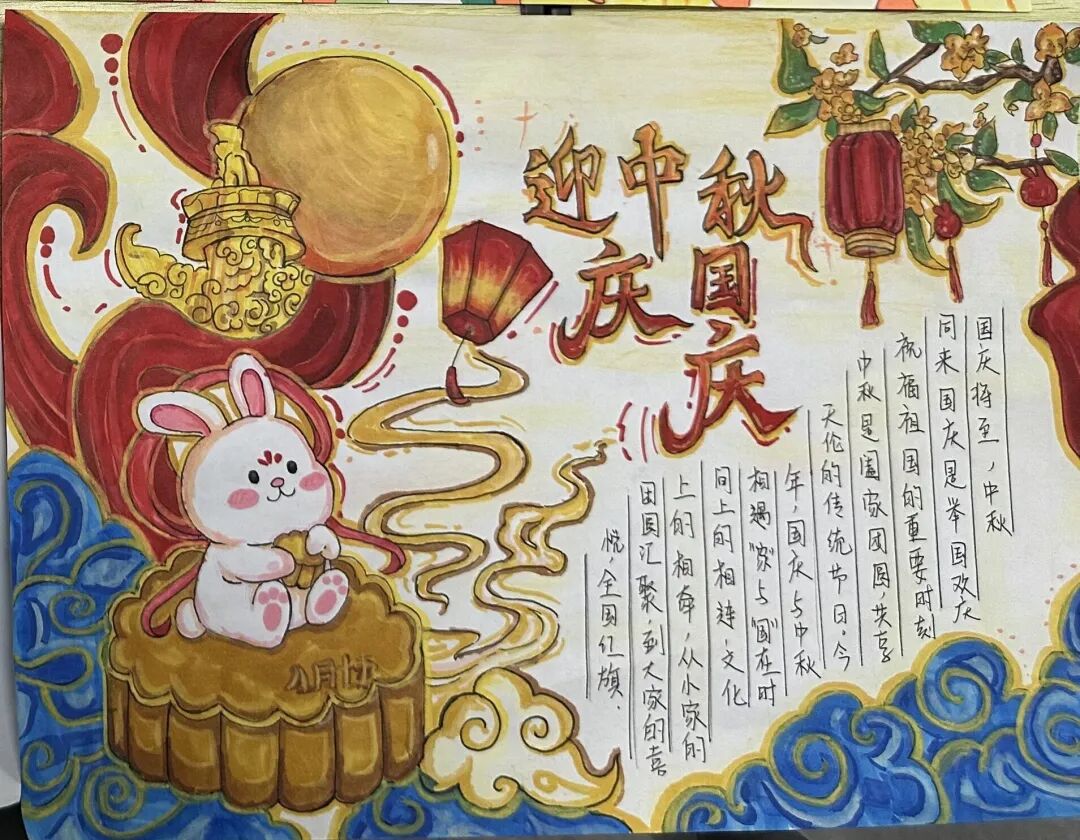 迎中秋
庆国庆
国庆将至，中秋
同来国庆是举国欢庆
祝福祖国的重要时刻
中秋是阖家团圆，共享
天伦的传统节日。今
年，国庆与中秋
相遇"家与"国"在时
间上的相连，文化
上的相牵，从小家的
团圆汇聚，到大家的喜
悦，全国红旗.
八月十五